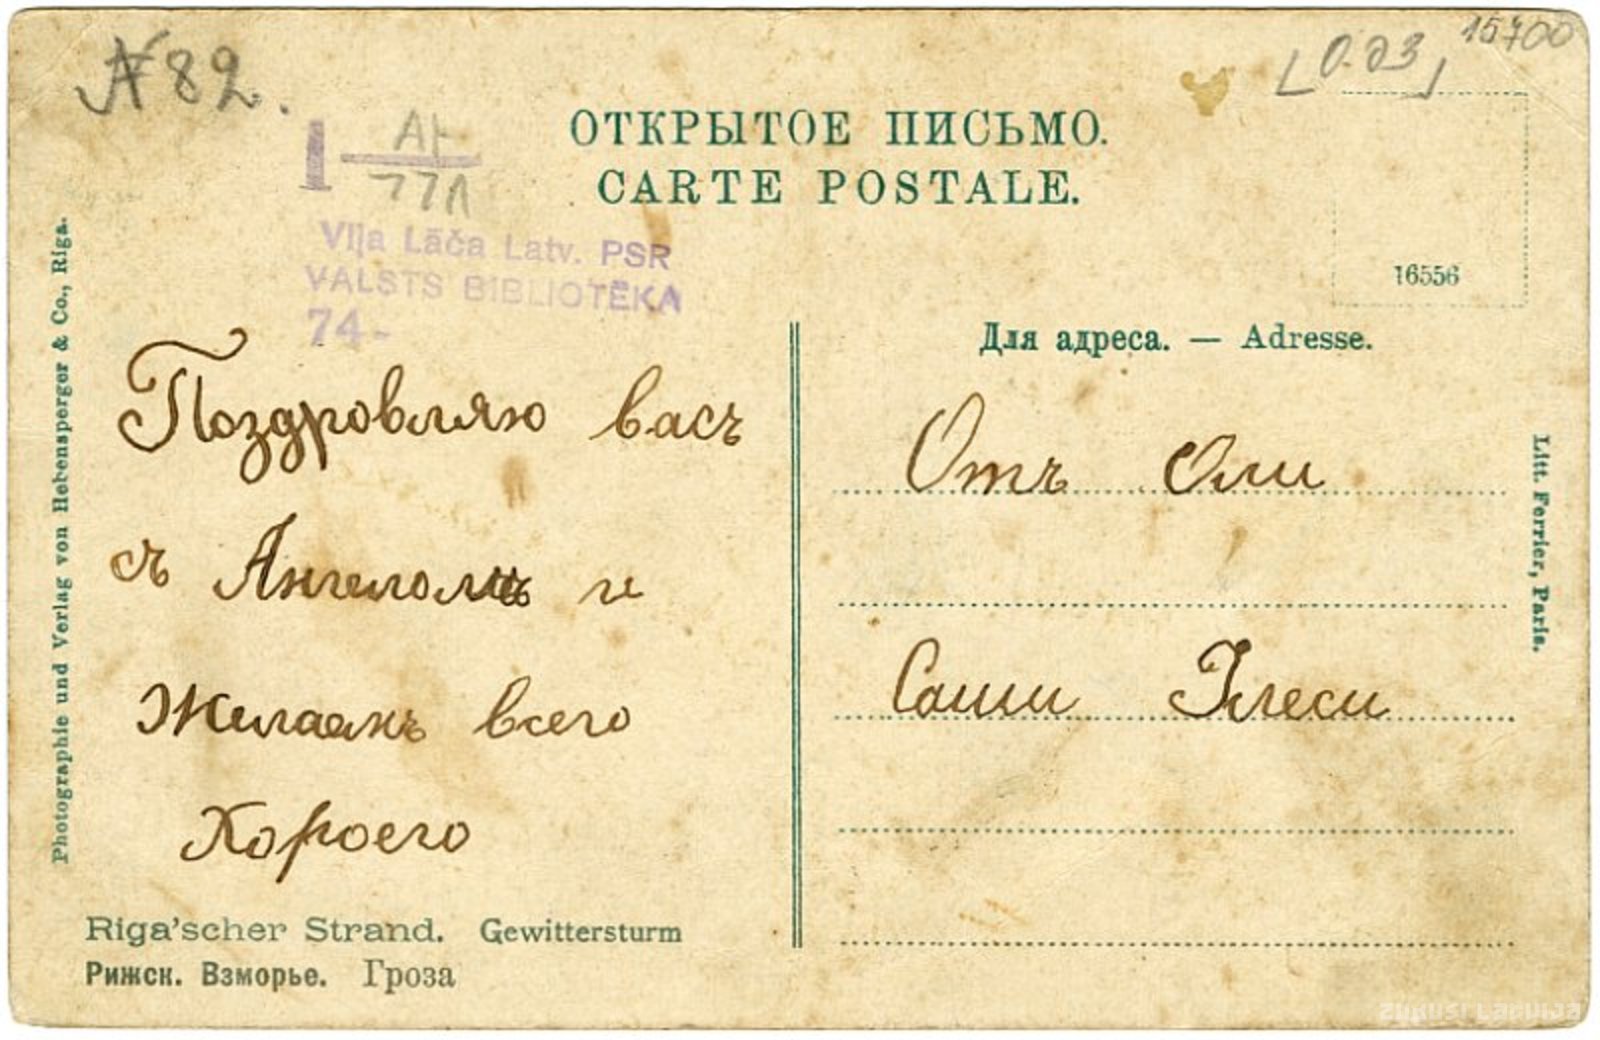 № 82.
[0.23] 15700
ОТКРЫТОЕ ПИСЬМО.
CARTE POSTALE.
1
Viļa Lāča Latv. PSR
VALSTS BIBLIOTĒKA
74-
16556
Для адреса. — Adresse.
Поздровляю васъ
съ Ангеломъ и
Желаемъ всего
Хороего
Отъ Оли
Саши
Photographie und Verlag von Hebensperger & Co., Riga.
Litt. Ferrier, Paris.
Riga'scher Strand. Gewittersturm
Рижск. Взморье. Гроза
ZUDUSĪ LATVIJA